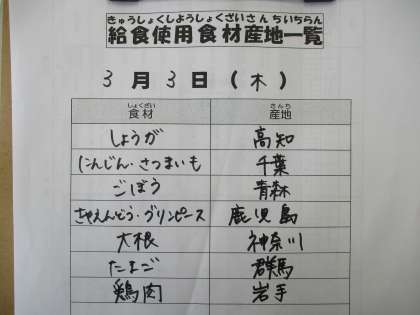 きゅうしょくしようしょくざいさんちいちらん
給食使用食材産地一覧
3月3日(木)
しょくざい さんち
食材 産地
しょうが 高知
にんじん・さつまいも 千葉
ごぼう 青森
きぬさやえんどう・グリンピース 鹿児島
大根 神奈川
たまご 群馬
鶏肉 岩手